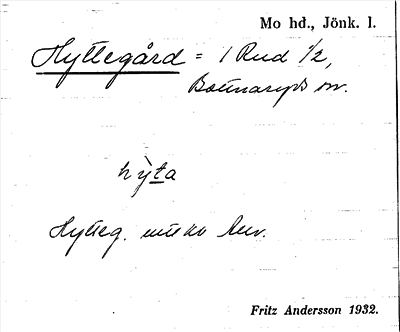 Mo hd., Jönk. l.
Hyttegård = 1 Rud 1/2,
Bottnaryds sn.
hy̆ta
Hytteg.
Fritz Andersson 1932.